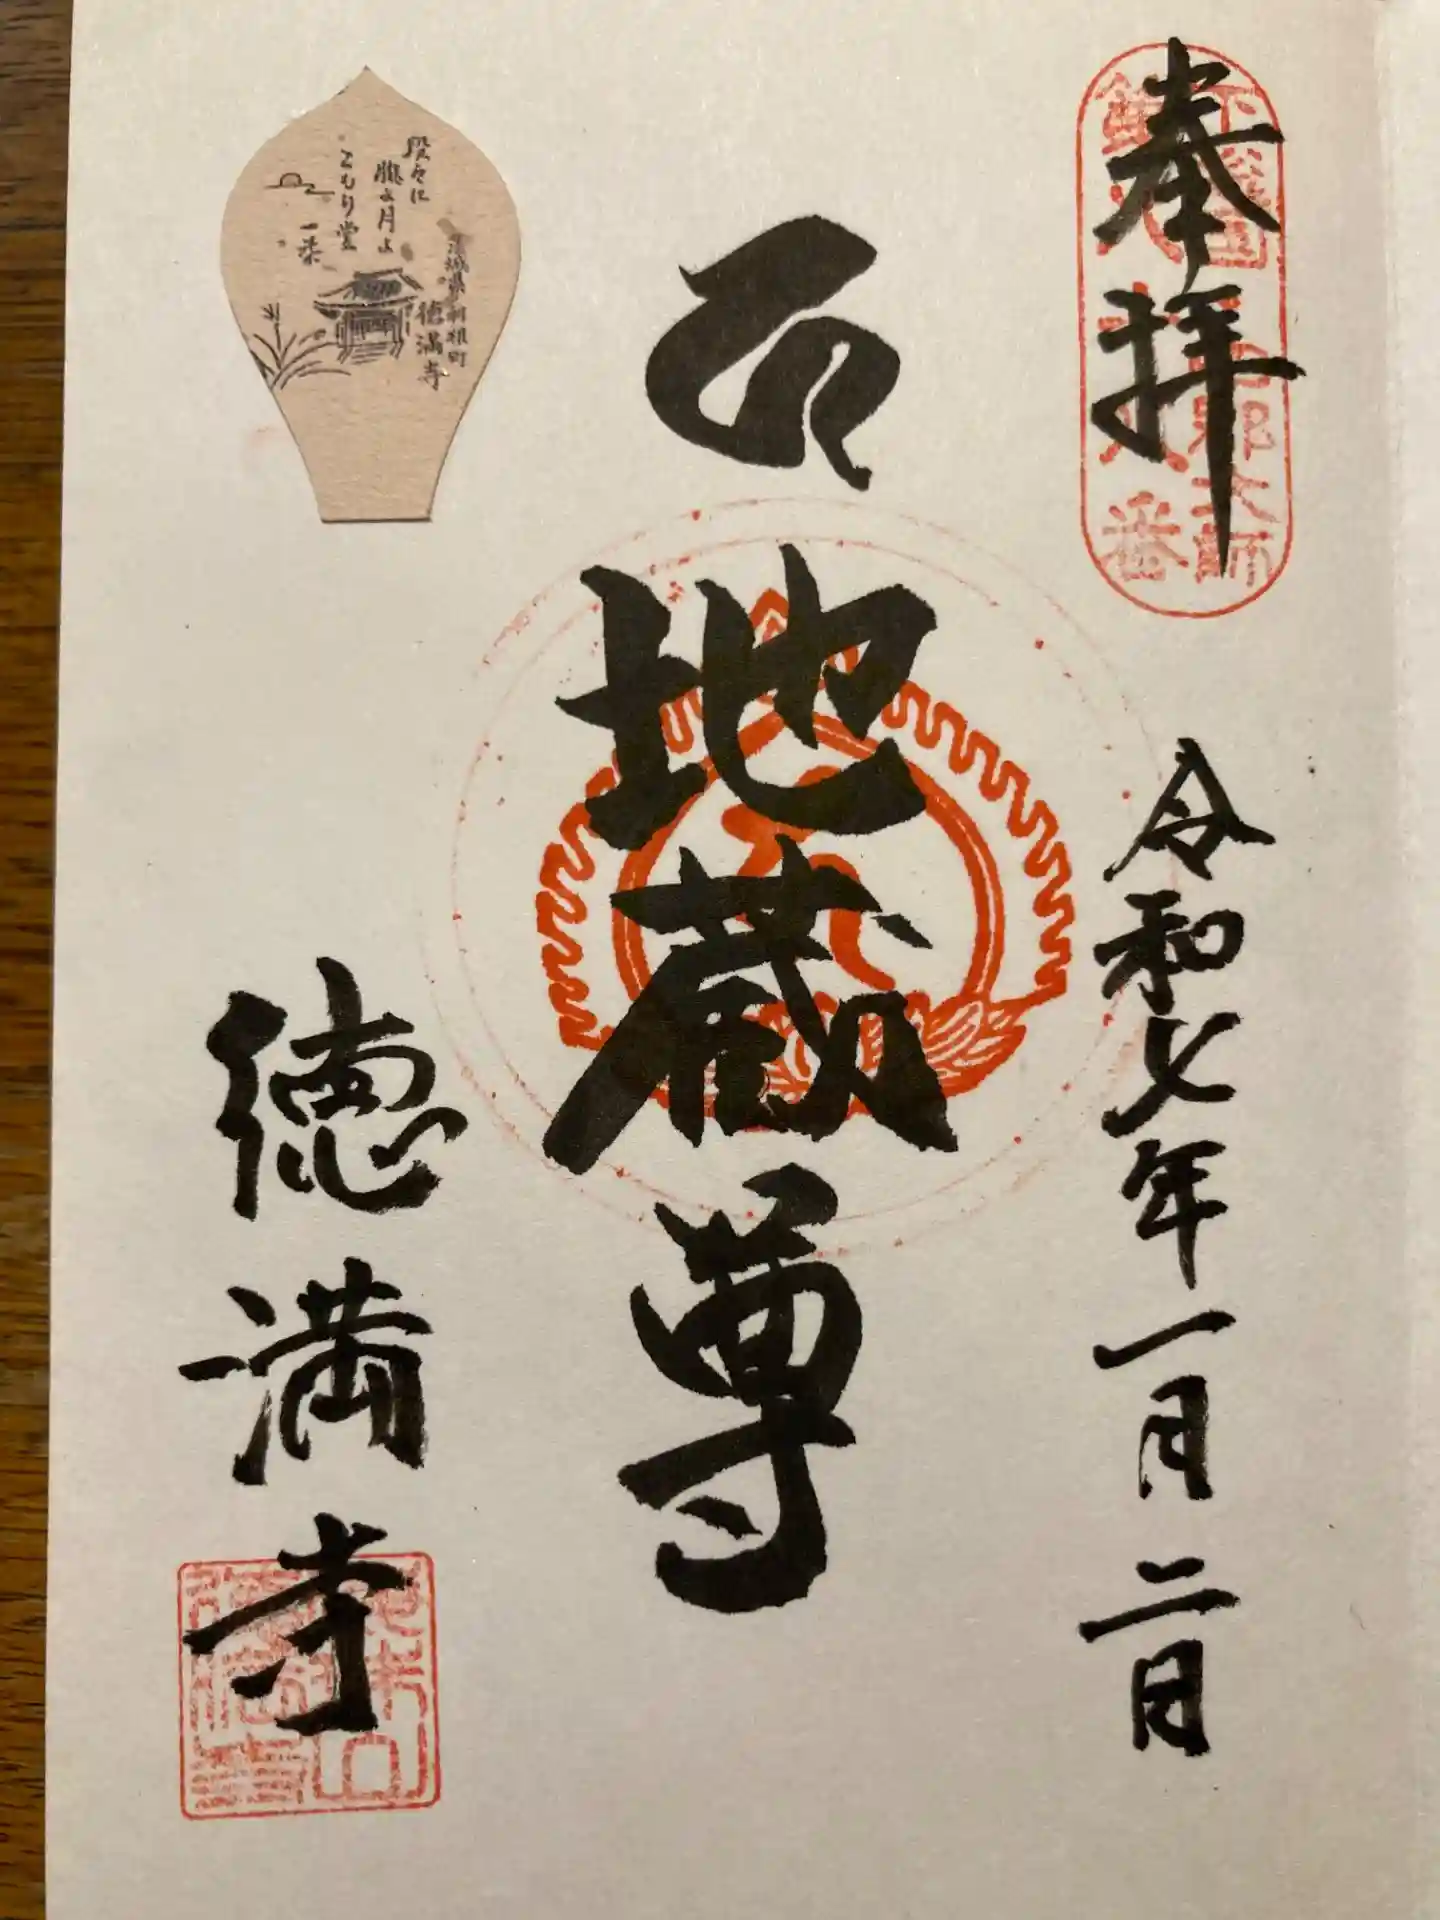 奉拝
令和七年一月二日
地蔵尊
徳満寺
段々に
朧よ月よ
こもり堂
一茶
茨城県利根町
徳満寺